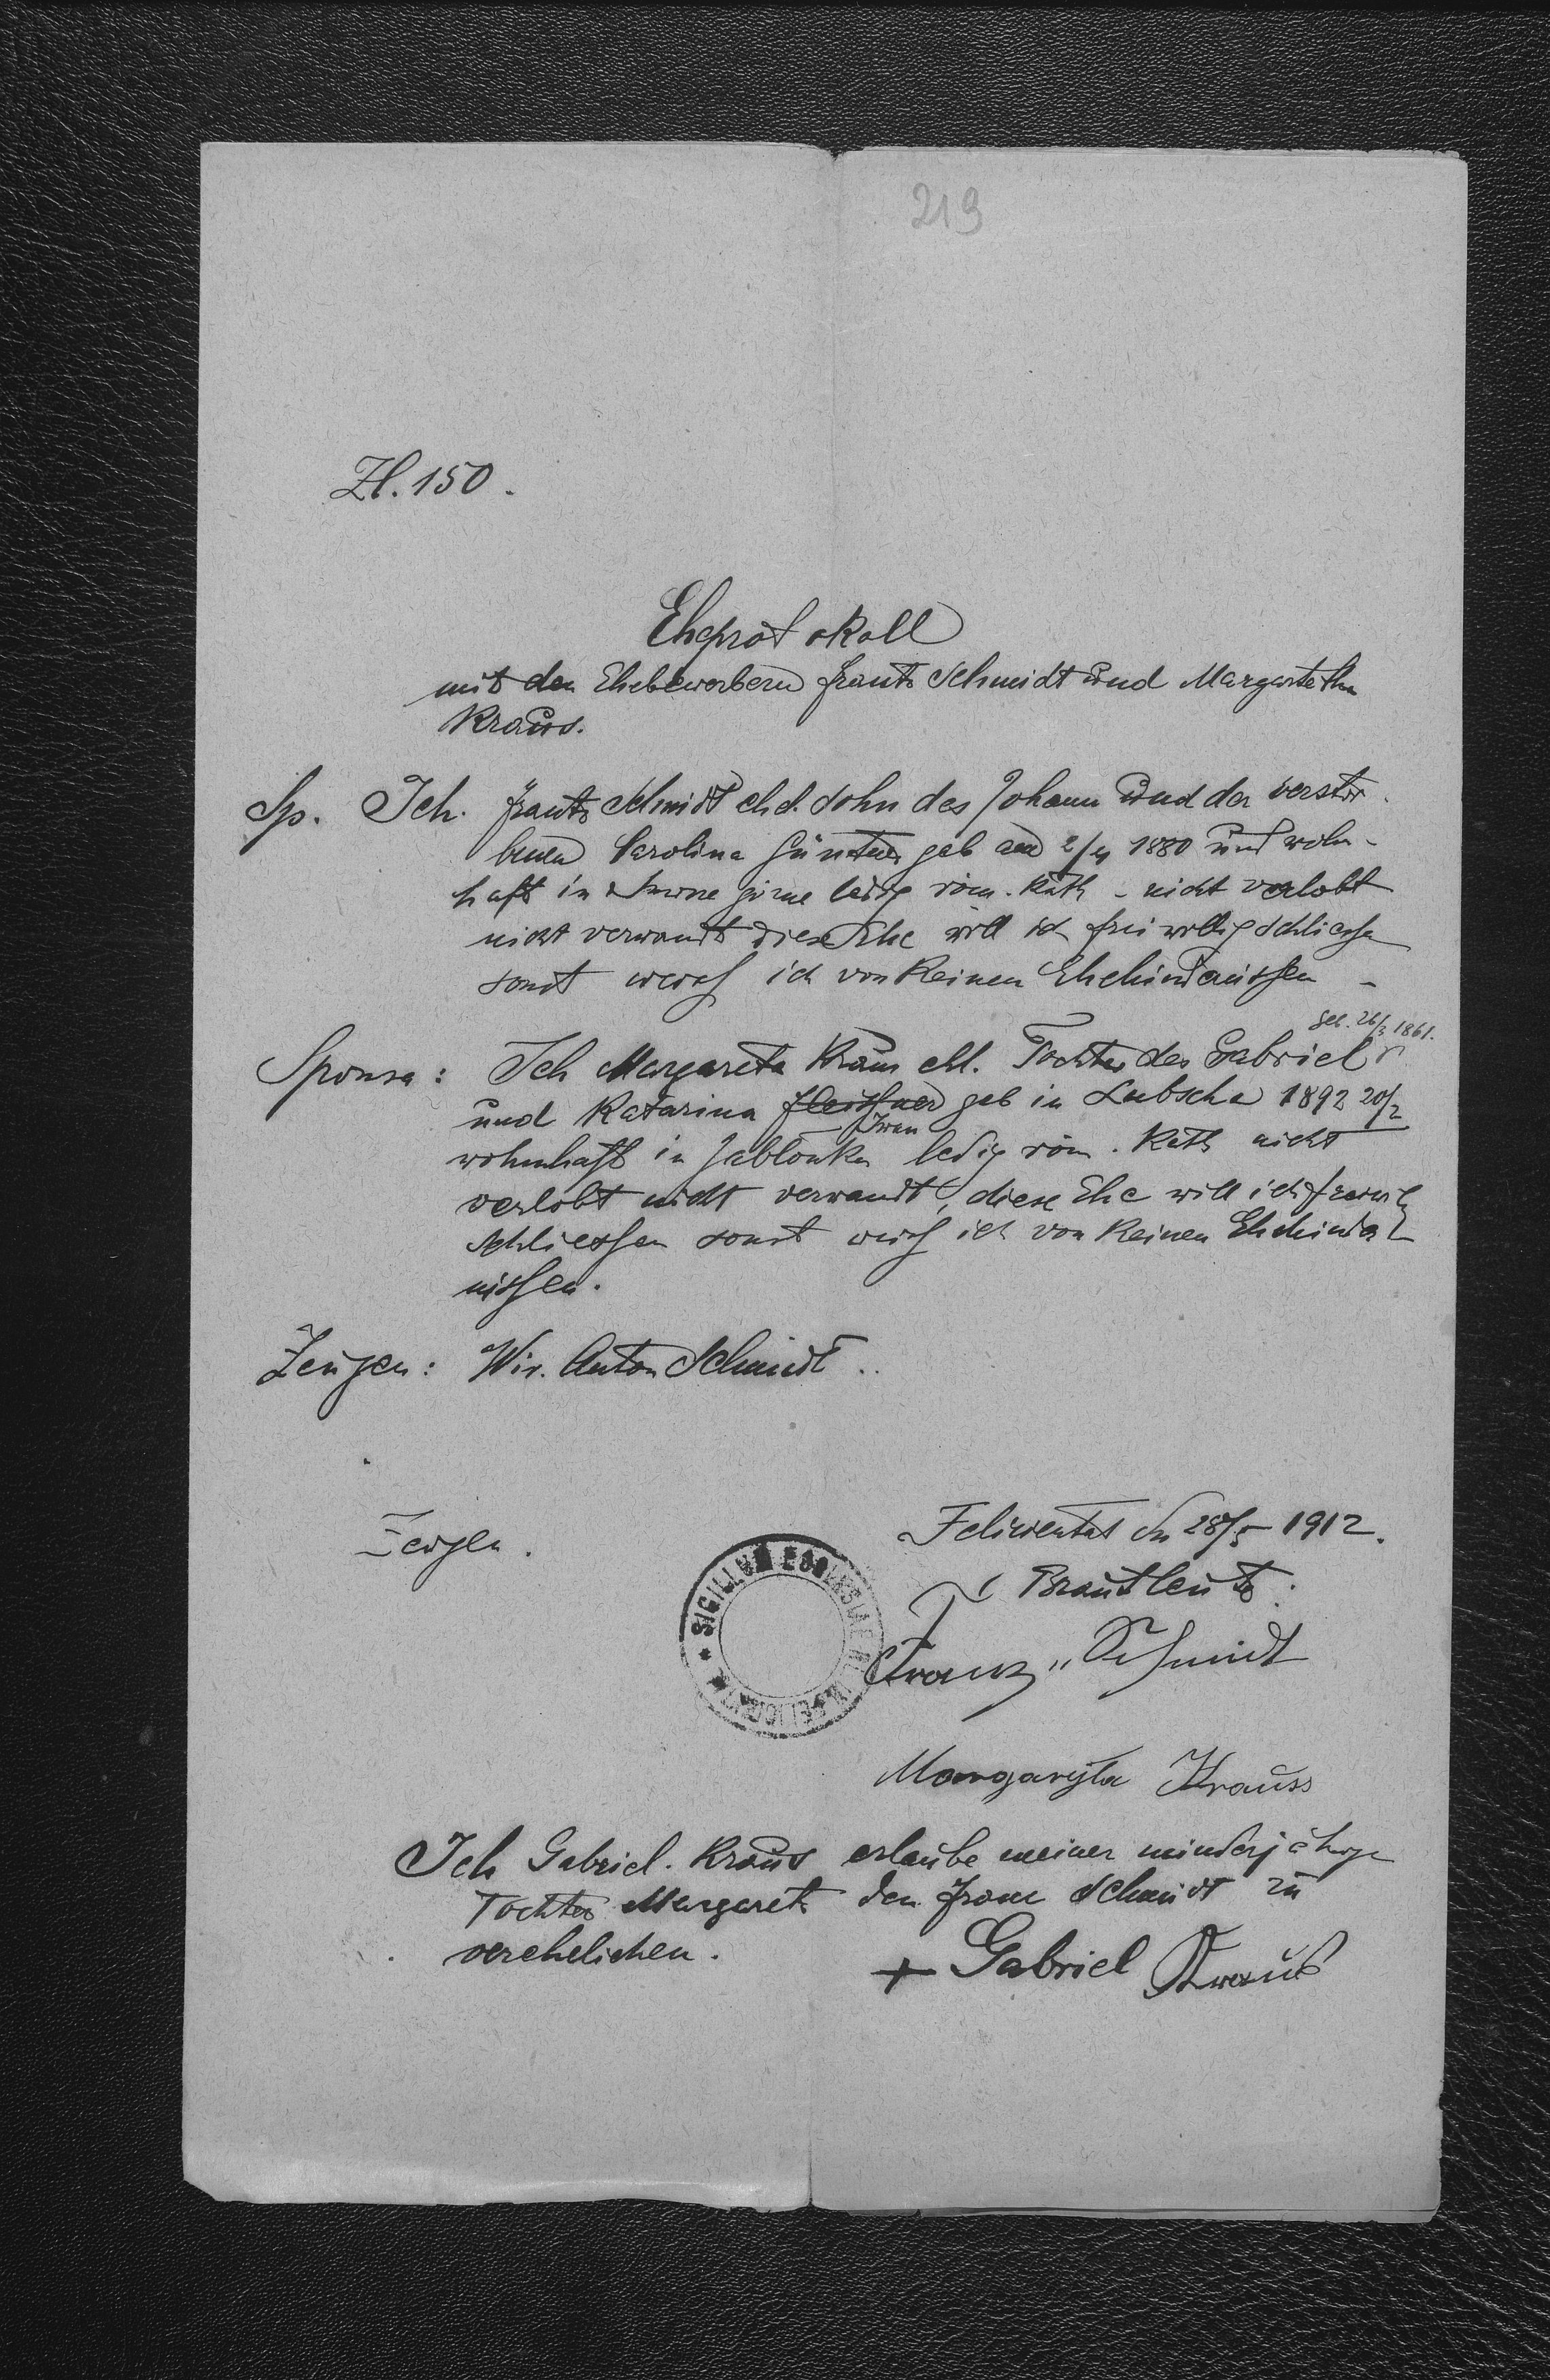 219
Zl. 150.
Eheprotokoll
mit den Ehebewerbern Frantz Schmidt und Margaretha
Kraus.
Sp. Ich. Frantz Schmidt ehel. Sohn des Johann und der verstor
benen Carolina Günther geb am 2/4 1880 und wohn-
haft in girne ledig röm. Kath - nicht verlobt
nicht verwandt diese Ehe will ich freiwillig schliessen
sonst weiss ich von Keinen Ehehindernissen -
geb. 26/3 1861.
Sponsa: Ich Margareta Kraus ehl. Tochter des Gabriel
und Katarina Fleissner geb in Lubscha 1892 20/2
Iwan
wohnhaft in Jablonka ledig röm. Kath nicht
verlobt nicht verwandt, diese Ehe will ich freiwil
schliessen sonst weiss ich von Keinen Ehehinder
nissen.
Zeugen: Wir. Anton Schmidt ..
Zeugen.
Felizienthal den 28/5 1912.
Brautleute:
SIGILLUM ECCLESIAE
Franz Schmidt
Margaryta Krauss
Ich Gabriel. Kraus erlaube meiner minderjährige
Tochter Margareta den Franz Schmidt zu
verehelichen.
+ Gabriel Kraus